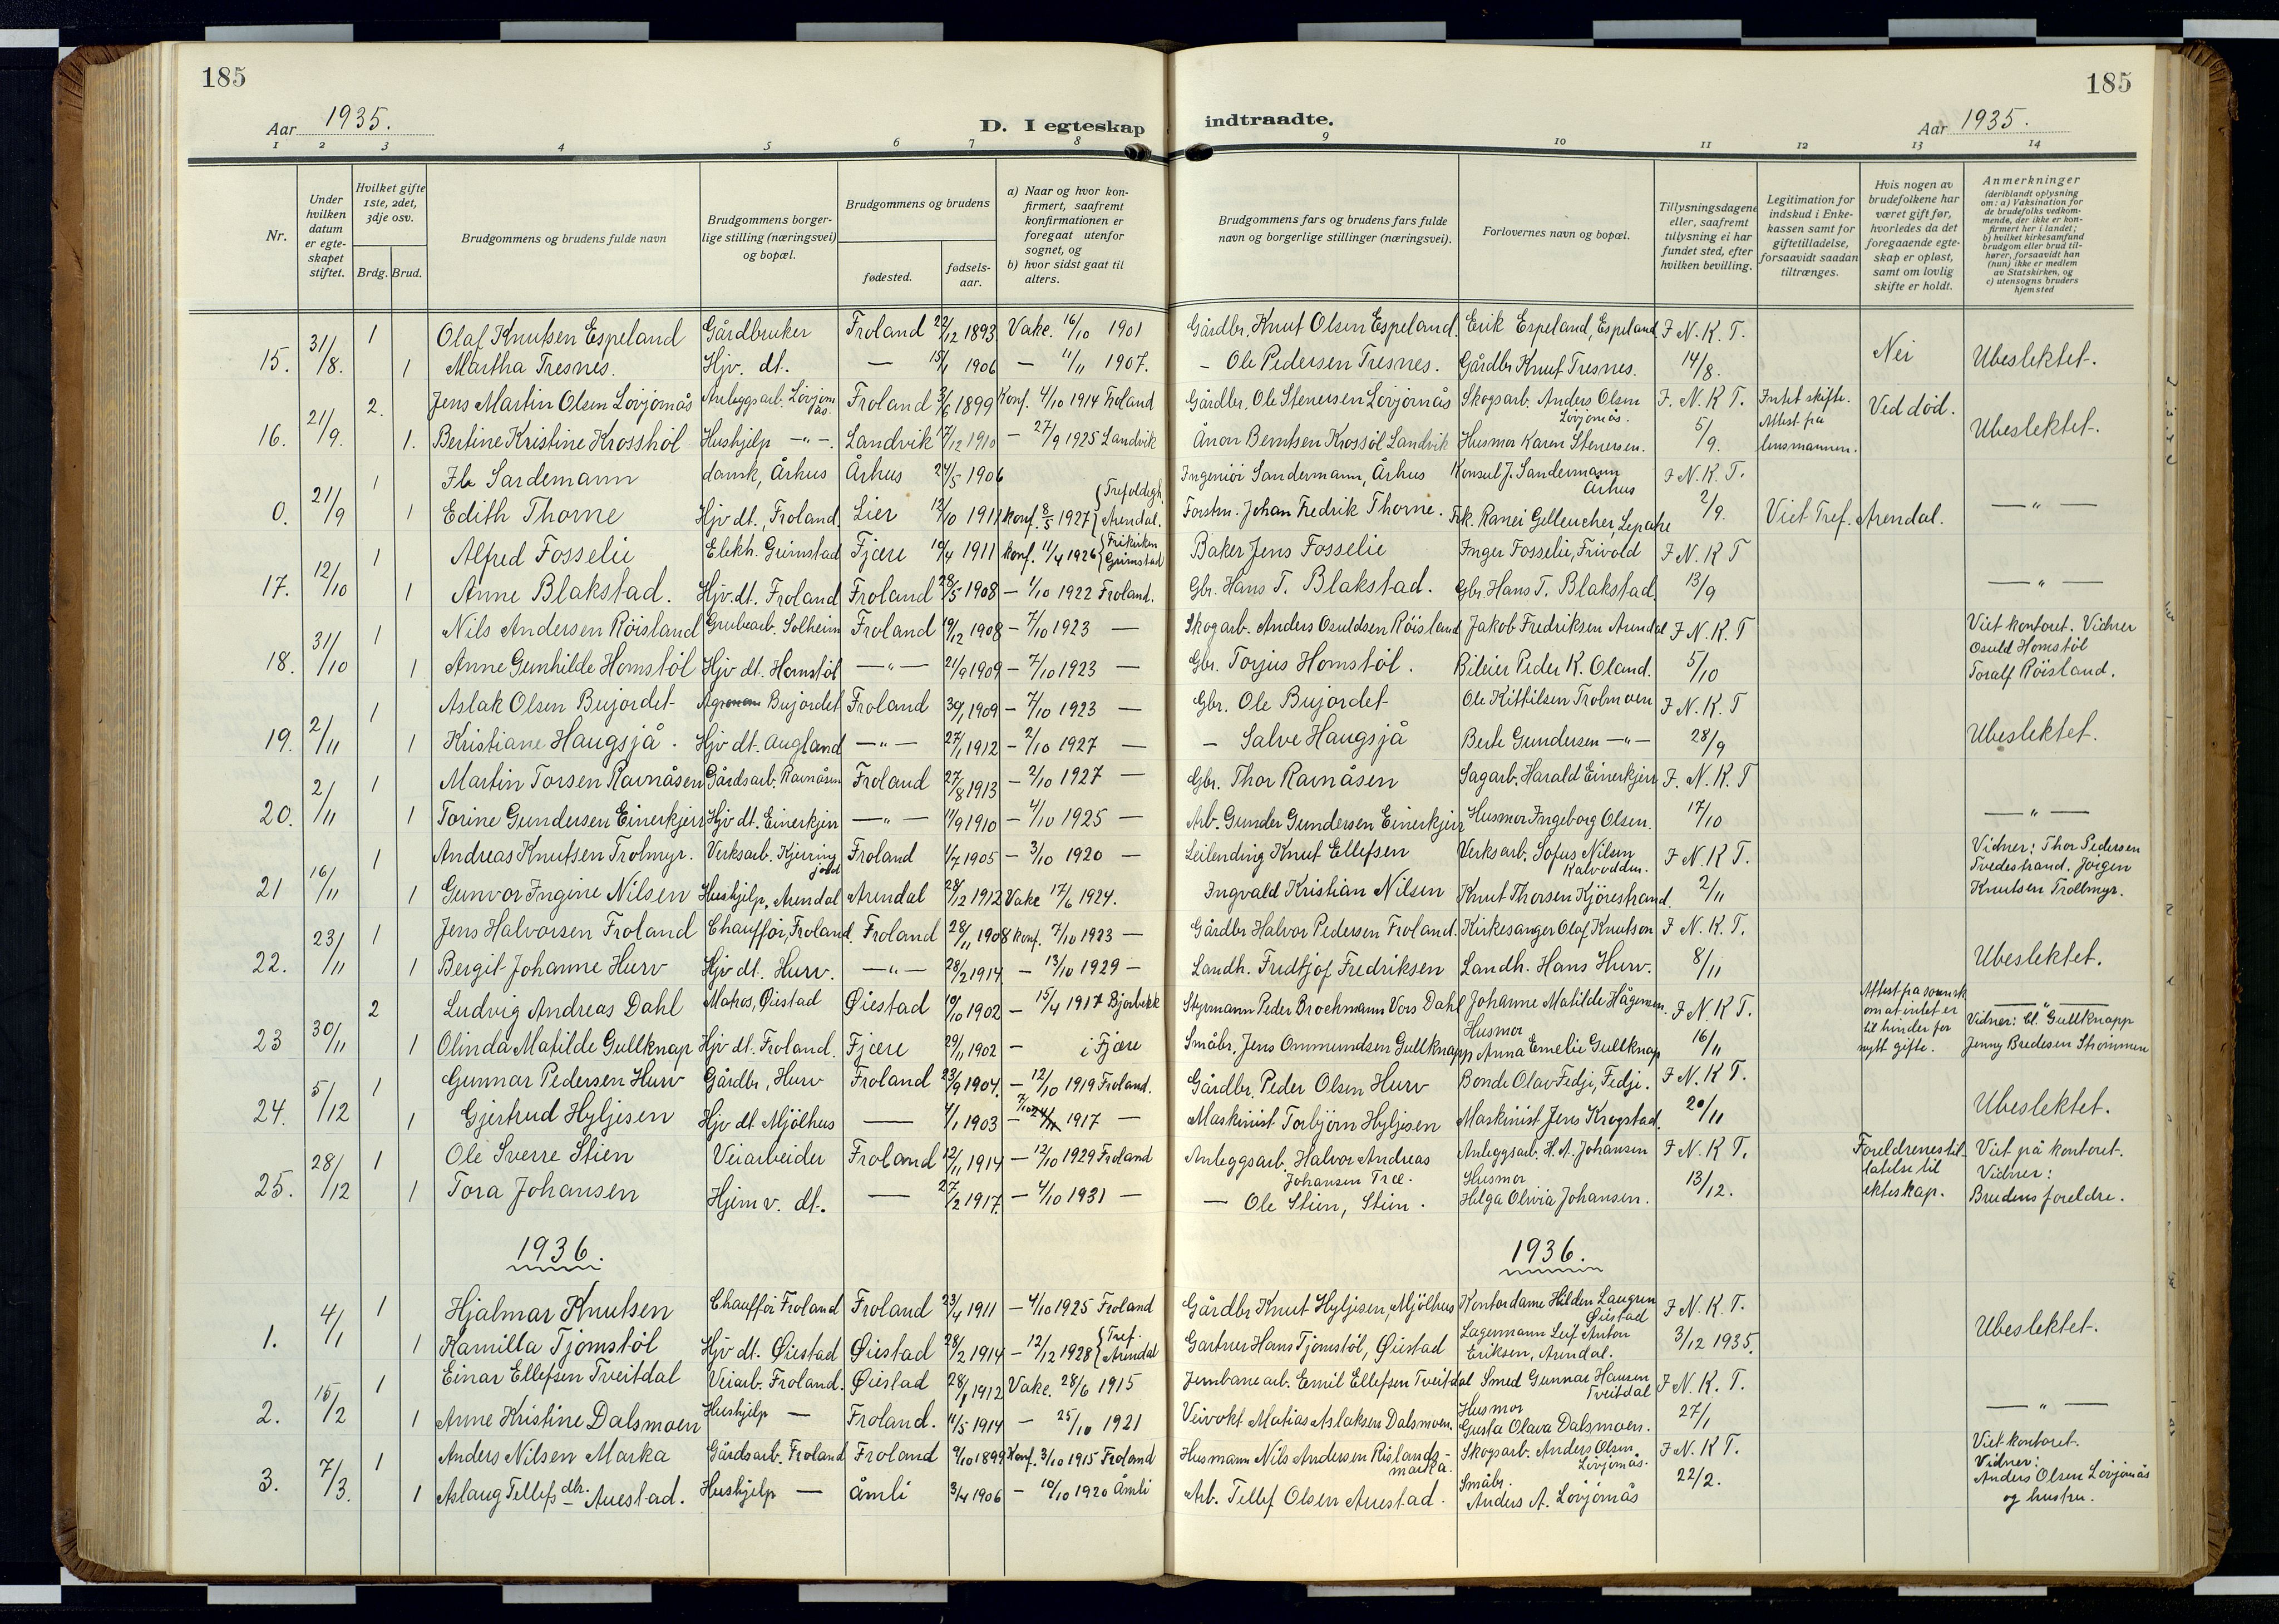 185
185
Aar 1935.
D. I egteskap indtraadte.
Aar 1935.
1 2 3 4 5 6 7 8 9 10 11 12 13 14
Nr.
Under hvilken datum er egteskapet stiftet.
Hvilket gifte 1ste, 2det, 3dje osv.
Brdg. Brud.
Brudgommens og brudens fulde navn
Brudgommens borgerlige stilling (næringsvei) og bopæl.
Brudgommens og brudens
fødested.
fødselsaar.
a) Naar og hvor konfirmert, saafremt konfirmationen er foregaat utenfor sognet, og
b) hvor sidst gaat til alters.
Brudgommens fars og brudens fars fulde navn og borgerlige stillinger (næringsvei).
Forlovernes navn og bopæl.
Tillysningsdagene eller, saafremt tillysning ei har fundet sted, efter hvilken bevilling.
Legitimation for indskud i Enkekassen samt for giftetilladelse, forsaavidt saadan tiltrænges.
Hvis nogen av brudefolkene har været gift før, hvorledes da det foregaaende egteskap er opløst, samt om lovlig skifte er holdt.
Anmerkninger
(deriblandt oplysning om: a) Vaksination for de brudefolks vedkommende, der ikke er konfirmert her i landet; b) hvilket kirkesamfund brudgom eller brud tilhører, forsaavidt han (hun) ikke er medlem av Statskirken, og c) utensogns bruders hjemsted
15. 31/8. 1 Olaf Knutsen Espeland Gårdbruker Froland 22/12 1893 Vake. 16/10 1901 Gårdbr. Knut Olsen Espeland. Erik Espeland, Espeland J N. K. T.
1 Martha Tresnes. Hjv. dt. — 15/1 1906 — 11/11 1907. — Ole Pedersen Tresnes. Gårdbr Knut Tresnes. 14/8. Nei Ubeslektet.
16. 21/9. 2. Jens Martin Olsen Lövjomås Anleggsarb. Lövjomås Froland 3/6 1899 Konf. 4/10 1914 Froland Gårdbr. Ole Stenersen Lövjomås Skogsarb. Anders Olsen Lövjomås. J. N. K T. Intet skifte. Ved död.
1. Bertine Kristine Krosshöl Hushjelp —"—. Landvik 17/12 1910 — 27/9 1925 Landvik Ånon Berntsen Krossöl Landvik Husmor Karen Stenersen. 5/9. Attest fra lensmannen. Ubeslektet.
0. 21/9 1 Ib Sardemann dansk, Århus Århus 24/5 1906 Ingeniör Sandermann, Århus Konsul J. Sandermann Århus J N. K. T.
1 Edith Thorne Hjv dt., Froland Lier 12/10 1911 Konf. 8/5 1927 {Trefoldigh. Arendal. Forstm. Johan Fredrik Thorne. Frk. Ranei Gelleucher, Lepakne 2/9. Viet Tref. Arendal. —"—
17. 12/10 1 Alfred Fosselie Elekh. Grimstad Fjære 19/4 1911 Konf. 11/4 1926 {Frikirken Grimstad Baker Jens Fosselie Inger Fosselie, Frivold J N. K T
1 Anne Blakstad. Hjv. dt. Froland Froland 28/5 1908 — 1/10 1922 Froland. Gbr. Hans T. Blakstad. Gbr. Hans T. Blakstad. 13/9 —"—
18. 31/10 1 Nils Andersen Röisland Grubearb. Solheim Froland 19/12 1908 — 7/10 1923 — Skogarb. Anders Osuldsen Röisland Jakob Fredriksen Arendal J N. K. T Viet kontoret. Vidner
1 Anne Gunhilde Homstöl Hjv dt. Homstöl —"— 21/9 1909 — 7/10 1923 — Gbr. Torjus Homstöl. Bileier Peder K. Oland. 5/10 Osuld Homstöl Toralf Röisland.
19. 2/11 1 Aslak Olsen Bujordet Agronom Bujordet Froland 30/1 1909 — 7/10 1923 — Gbr. Ole Bujordet Ole Kittilsen Trolmoen J N. K. T
1 Kristiane Haugsjå. Hjv dt. Augland —"— 27/1 1912 — 2/10 1927 — — Salve Haugsjå Berte Gundersen —"— 28/9 Ubeslektet.
20. 2/11 1 Martin Torsen Ravnåsen Gårdsarb. Ravnåsen Froland 27/8 1913 — 2/10 1927 — Gbr. Thor Ravnåsen Sagarb. Harald Einerkjerr J. N. K. T
1 Torine Gundersen Einerkjerr Hjv dt. Einerkjerr —"— 14/9 1910 — 4/10 1925 — Arb. Gunder Gundersen Einerkjerr Husmor Ingeborg Olsen. 17/10 —"—
21 16/11 1 Andreas Knutsen Trolmyr. Verksarb. Kjerringjordet Froland 1/7 1905 — 3/10 1920 — Leilending Knut Ellefsen Verksarb. Sofus Nilsen Kalvodden. J N. K T. Vidner: Thor Pedersen
1 Gunvor Ingine Nilsen Hushjelp, Arendal Arendal 28/12 1912 Vake 17/6 1924. Ingvald Kristian Nilsen Knut Thorsen Kjörestrand. 2/11 Tvedestrand. Jörgen Knutsen Trollmyr.
22. 23/11 1 Jens Halvorsen Froland Chafför, Froland. Froland 28/11 1908 Konf. 7/10 1923 — Gårdbr Halvor Pedersen Froland. Kirkesanger Olaf Knutson J N. K. T.
1 Bergit Johanne Hurv Hjv dt. Hurv. —"— 28/2 1914 — 13/10 1929 — Landh. Fredtjof Fredriksen Landh. Hans Hurv. 8/11 Ubeslektet.
23 30/11 2 Ludvig Andreas Dahl Matros, Øiestad Øiestad 19/10 1902 — 15/4 1917 Bjorbekk Styrmann Peder Brochmann Vors Dahl Johanne Matilde Hågensen. J N K T. Attest fra sorensk. om at intet er til hinder for nytt gifte. —"—
1 Olinda Matilde Gullknap Hjv dt. Froland. Fjære 29/11 1902 — i Fjære Småbr. Jens Ommundsen Gullknapp Husmor Anna Emelie Gullknap 16/11 Vidner: Cl. Gullknapp Jenny Bredesen Strömmen
24. 5/12 1 Gunnar Pedersen Hurv Gårdbr, Hurv Froland 23/9 1904. — 12/10 1919 Froland. Gårdbr. Peder Olsen Hurv Bonde Olav Fedji, Fedje. J N. K T.
1 Gjertrud Hyljesen Hjv dt Mjölhus — 4/1 1903 — 7/10 1917 — Maskinist Torbjörn Hyljesen Maskinist Jens Krogstad. 20/11 Ubeslektet.
25. 28/12 1 Ole Sverre Stien Veiarbeider Froland 12/11 1914 — 12/10 1929 Froland Anleggsarb. Halvor Andreas Johansen Træ. Anleggsarb. H. A. Johansen J N. K T. Foreldrenes tillatelse til ekteskap. Viet på kontoret.
1 Tora Johansen Hjem v. dt. — 27/2 1917. — 4/10 1931 — — Ole Stien, Stien. Husmor Helga Olivia Johansen. 13/12. Vidner: Brudens foreldre.
1936. 1936.
1. 4/1 1 Hjalmar Knutsen Chafför Froland Froland 23/4 1911 — 4/10 1925 Froland Gårdbr Knut Hyljesen, Mjölhus Kontordame Hilden Laugren Øiestad J N. K. T.
1 Kamilla Tjomstöl Hjv dt. Øiestad Øiestad 28/2 1914 — 12/12 1928 {Tref. Arendal Gartner Hans Tjomstöl, Øiestad Lagermann Leif Anton Eriksen, Arendal. 3/12 1935. Ubeslektet.
2. 15/2 1 Einar Ellefsen Tveitdal Veiarb. Froland. Øiestad 28/1 1912 Vake. 28/6 1915 Jernbanearb. Emil Ellefsen Tveitdal Smed Gunnar Hansen Tveitdal J N. K. T.
1 Anne Kristine Dalsmoen Hushjelp — Froland. 11/5 1914 — 25/10 1921 Veivokt Matias Aslaksen Dalsmoen. Husmor Gusta Olava Dalsmoen. 27/1 —"—
3. 7/3. 1 Anders Nilsen Marka Gårdsarb. Froland Froland 9/10 1899 Konf. 3/10 1915 Froland Husmann Nils Andersen Rislandsmarka. Skogsarb. Anders Olsen Lövjomås. J N. K T. Viet kontoret.
1 Aslaug Tellefsdtr. Auestad. Hushjelp — Åmli 3/4 1906 — 10/10 1920 Åmli Arb. Tellef Olsen Auestad. Småbr. Anders A. Lövjomås 22/2. Vidner: Anders Olsen Lövjomås og hustru.